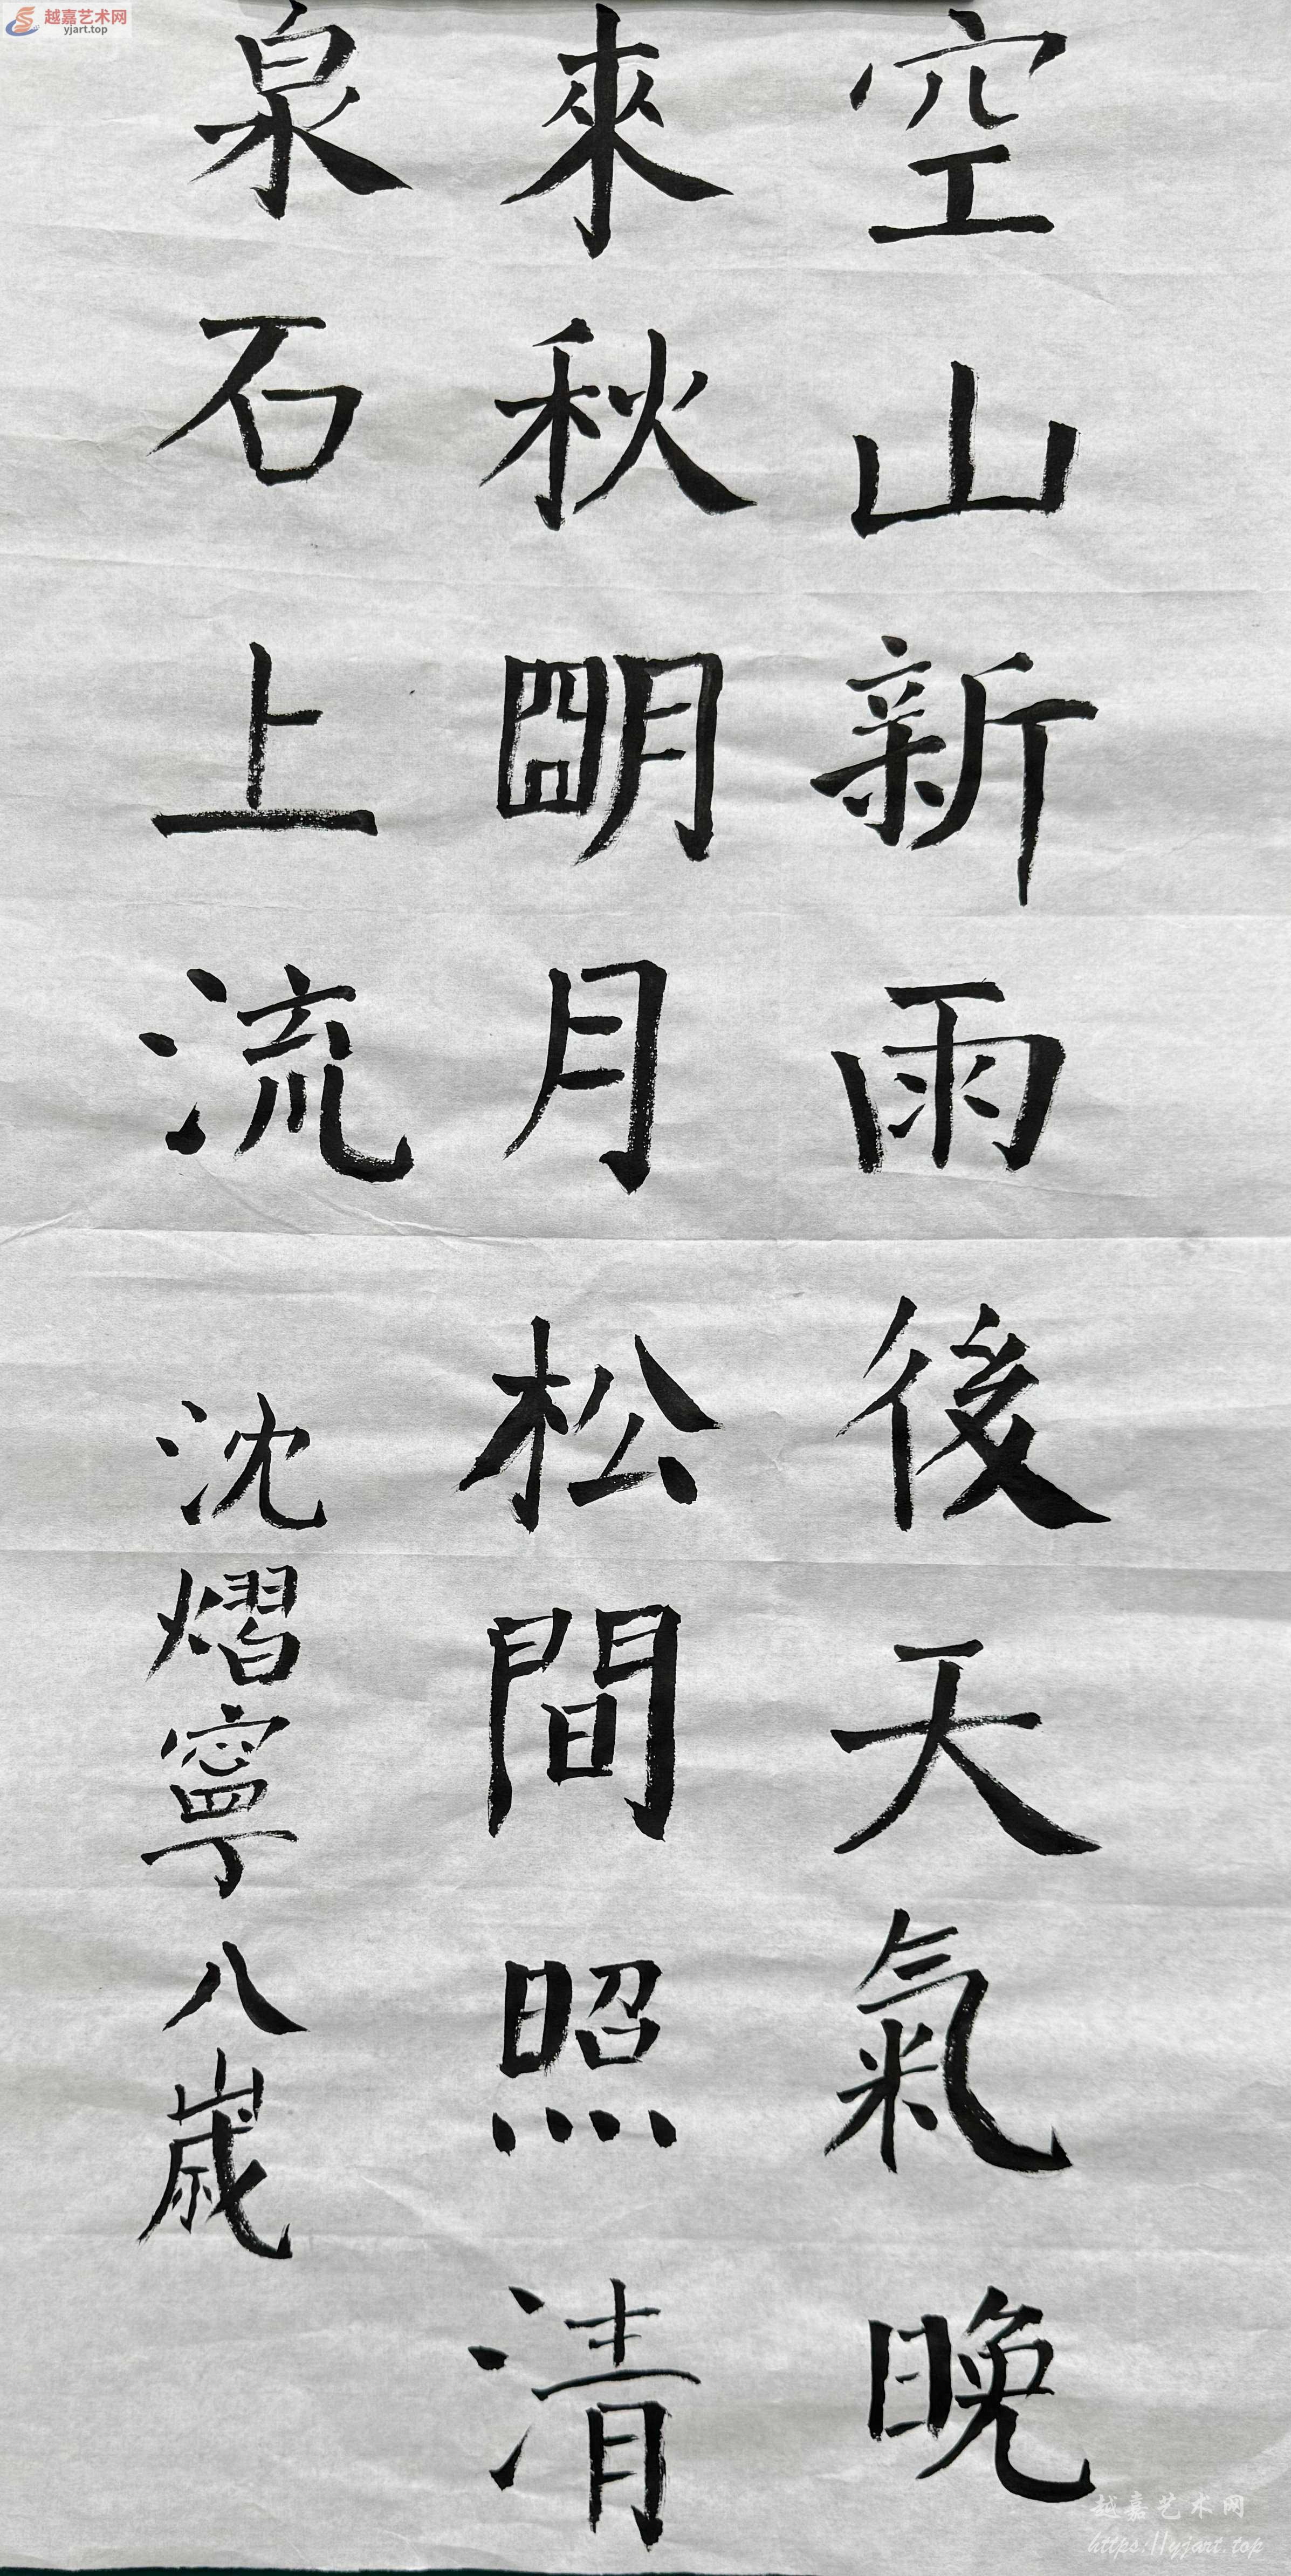 空山新雨後天氣晚
來秋明月松間照清
泉石上流
沈熠寧八歲
越嘉艺术网
yjart.top
越嘉艺术网
https://yjart.top